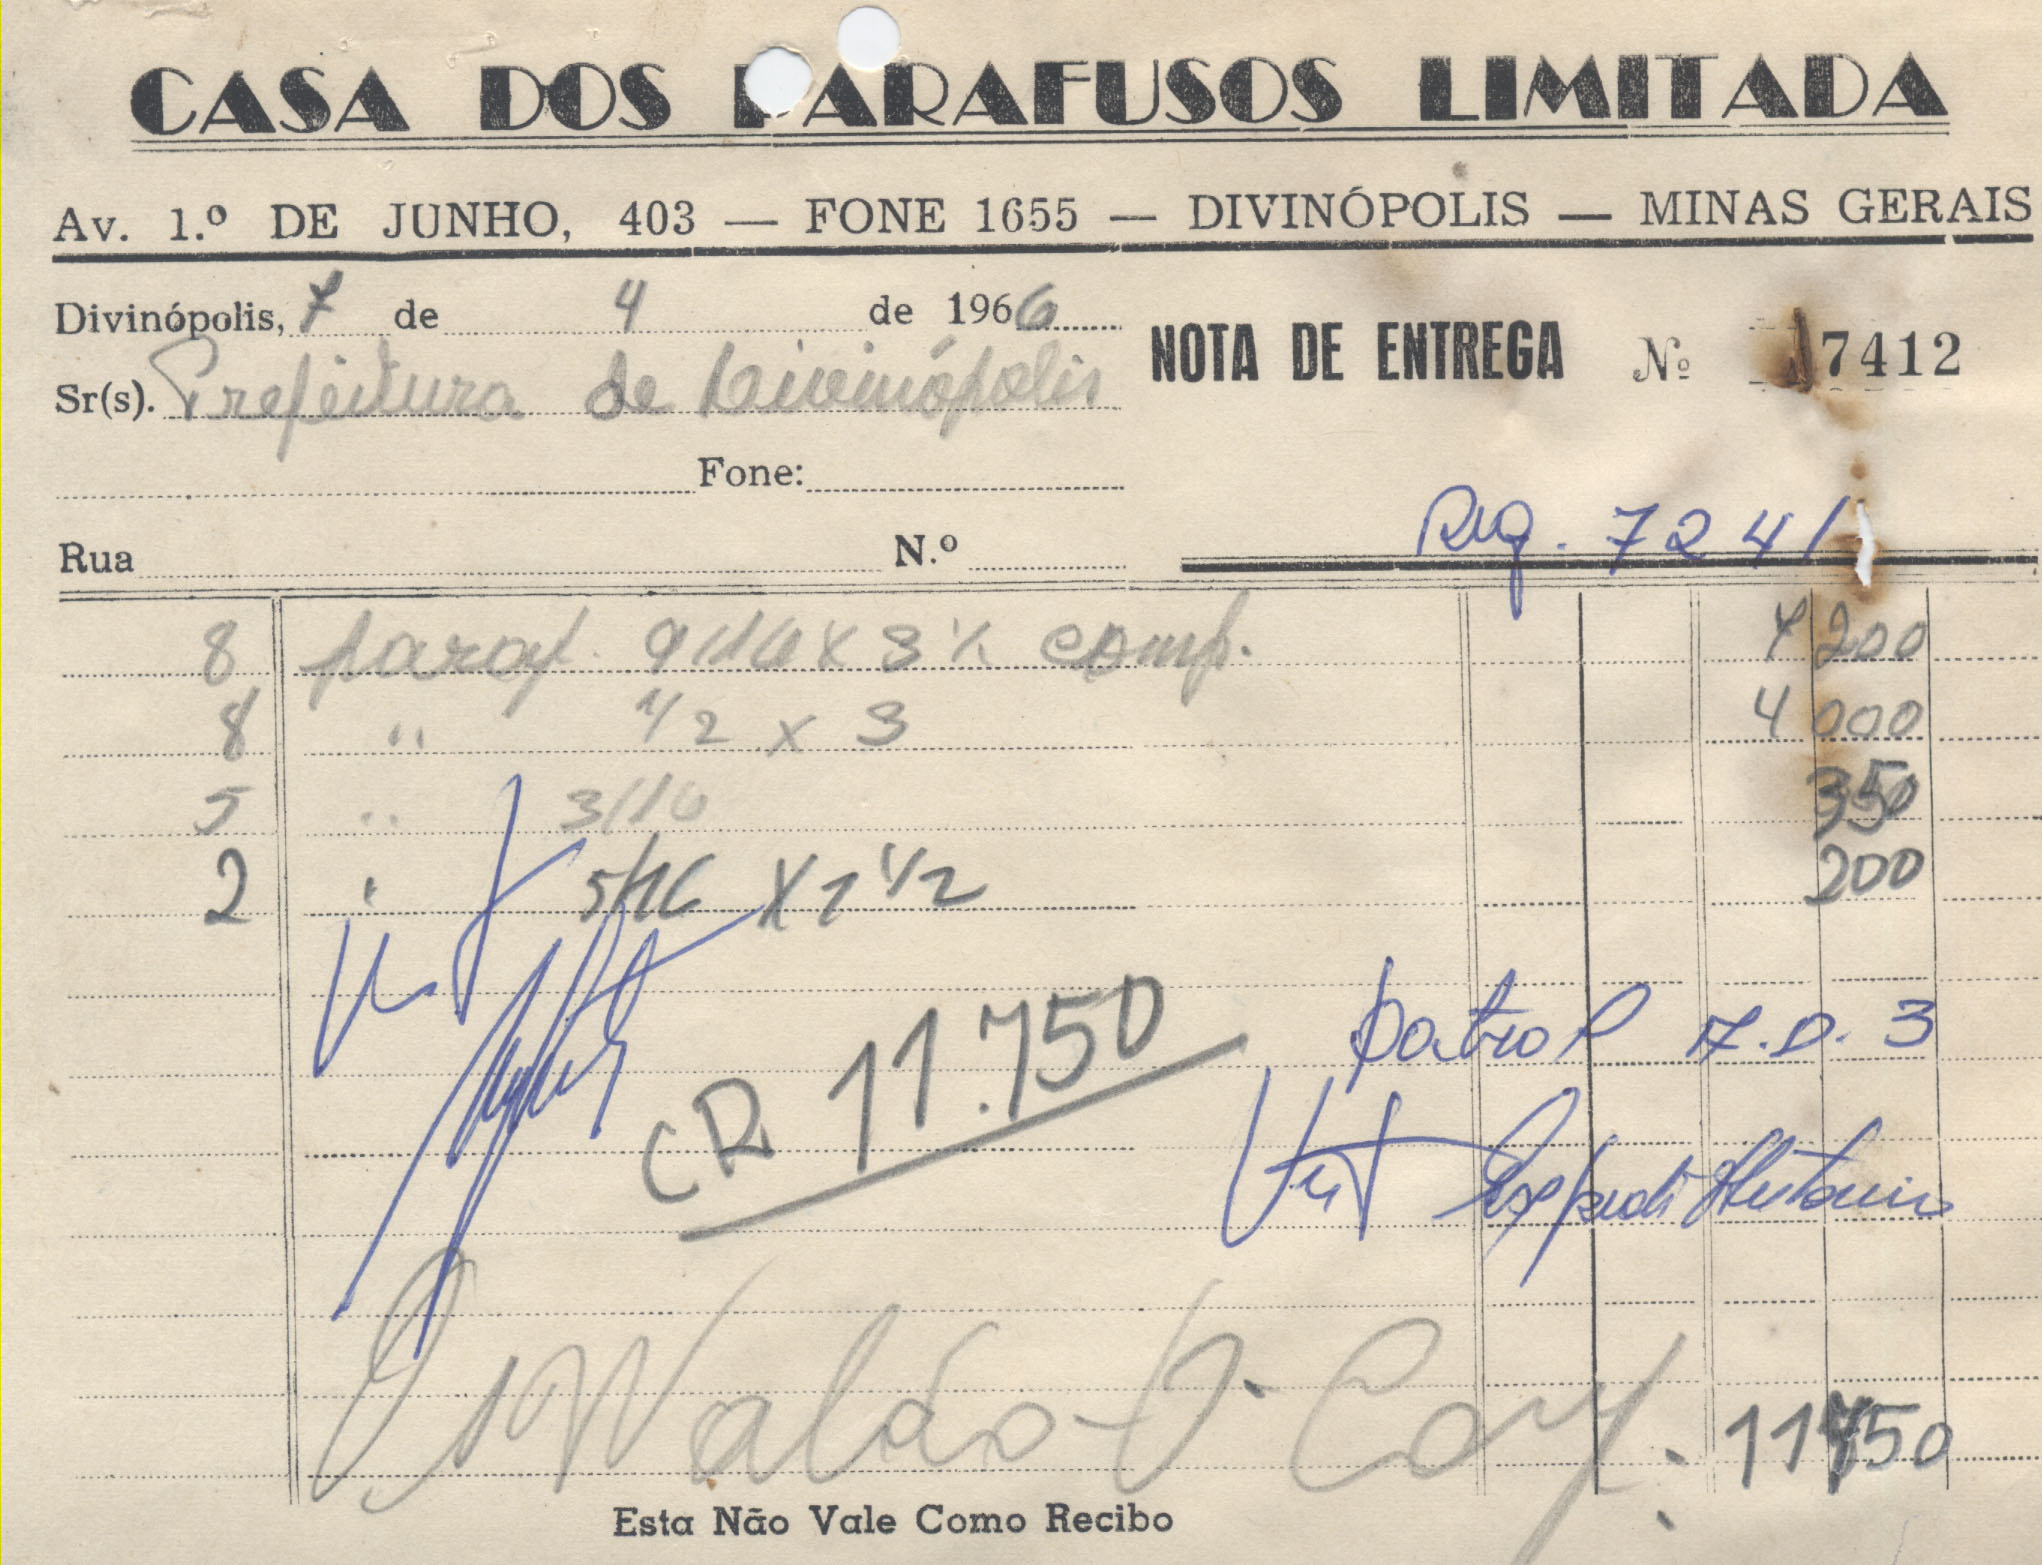 CASA DOS PARAFUSOS LIMITADA
Av. 1.º DE JUNHO, 403 — FONE 1655 — DIVINÓPOLIS — MINAS GERAIS
Divinópolis, 7 de 4 de 1966
NOTA DE ENTREGA Nº 17412
Sr(s). Prefeitura de Divinópolis
Fone:
Req. 7241
Rua N.º
8 paraf. 9/16 x 3 ½ comp. 7 200
8 " 1/2 x 3 4 000
5 " 3/16 350
2 " 5/16 x 1 1/2 200
patrol 7.D. 3
CR 11.750
Vist
11 750
Esta Não Vale Como Recibo